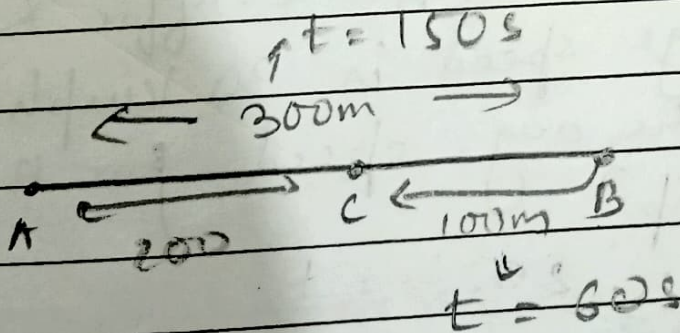 t = 150s
300m
A C B
200 100m
t = 60s